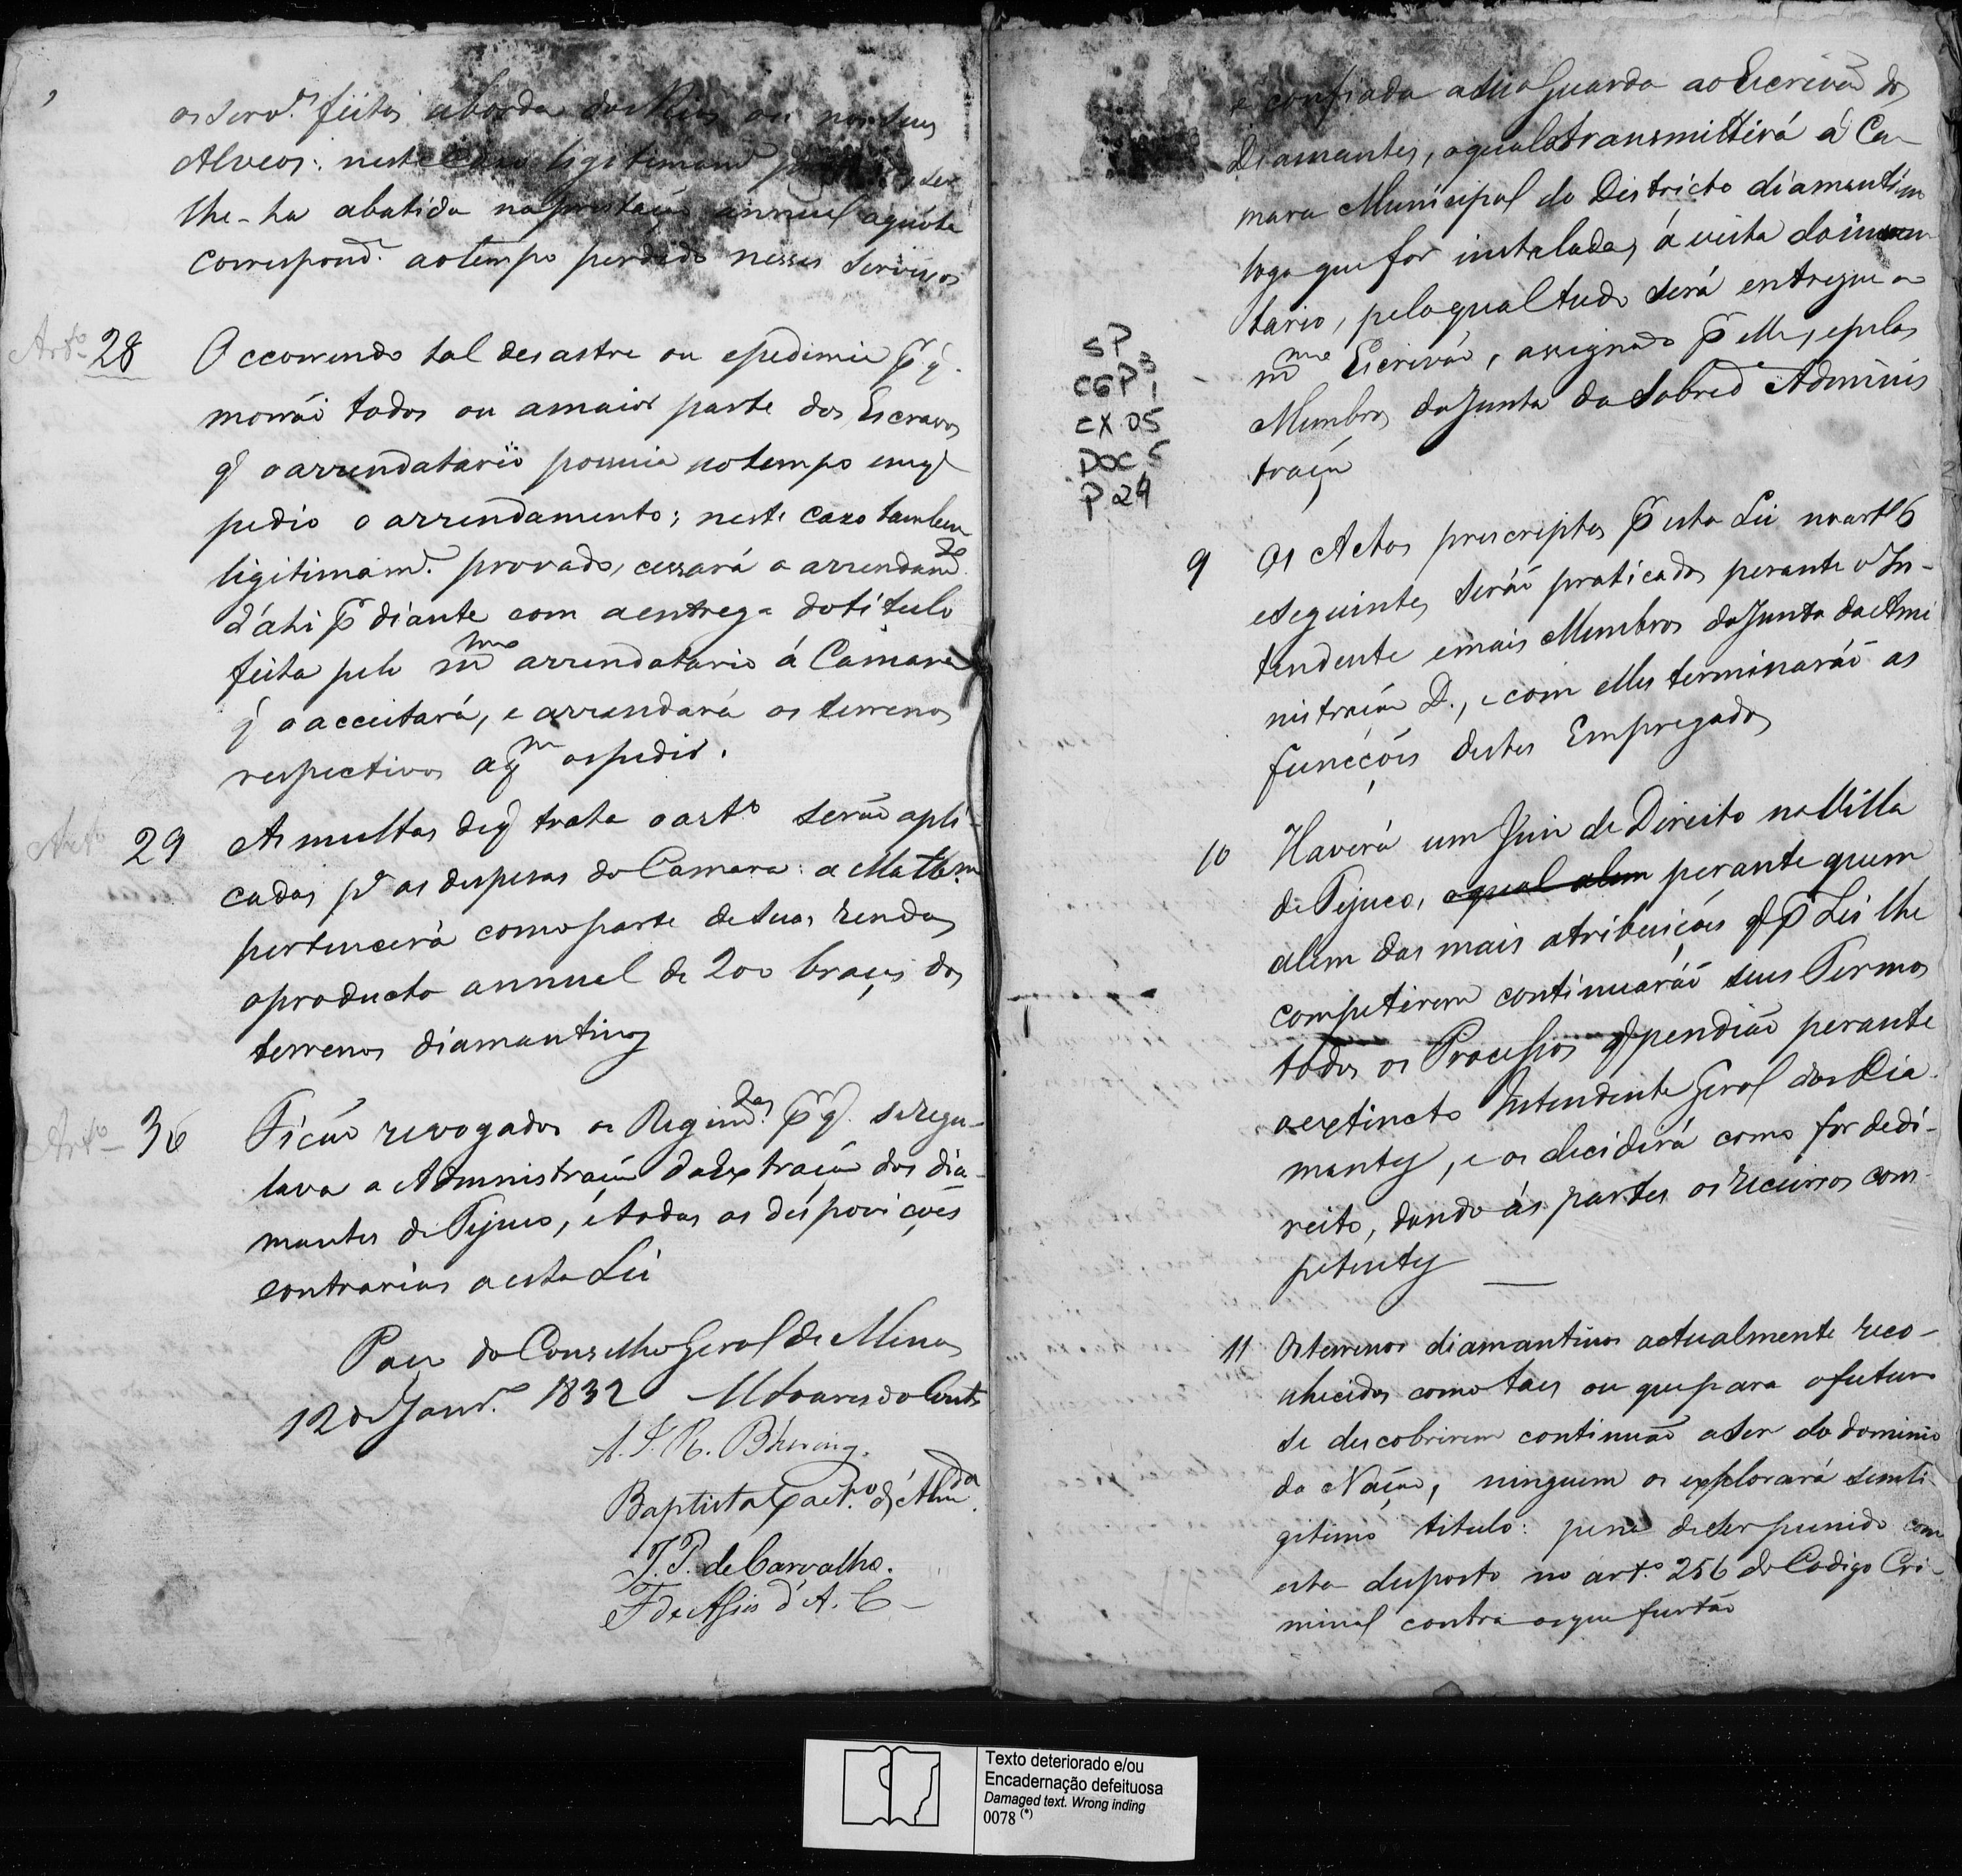 os serv.os feitos a borda dos Rios ou nos seus
Alveos: neste caso legitimam.e ser
lhe-ha abatida na prestação annual a quóta
correspond.e ao tempo perdido nesses serviços
Art.o 28 Occorrendo tal desastre ou epedimia p q.
morrão todos ou a maior parte dos Escravos
q o arrendatario possuia no tempo em q
pedio o arrendamento; neste cazo tambem
legitimam.e provado, cessará o arrendam.to
d'ahi p diante com a entrega do titulo
feita pelo m.mo arrendatario á Camara
q o acceitará, e arrendará os terrenos
respectivos a q.m os pedir.
Art.o 29 As multas de q trata o art.o serão apli-
cadas p.a as despesas da Camara: a
pertencerá como parte de suas rendas
o producto annuel de 200 braças dos
terrenos diamantinos
Art.o 30 Ficão revogados os Regim.tos p q. se regu-
lava a Administração da Extração dos dia-
mantes de Tejuco, e todas as dispozições
contrarias a esta Lei
Paço do Conselho Geral de Minas
12 de Janr.o 1832 M Soares do Couto
A. J. R. Bhering.
Baptista Caet.no d'Alm.da
J. P. de Carvalho.
F de Assis d'A. C
e confiada a sua Guarda ao Escrivão dos
Diamantes, o qual a transmittirá á Ca-
mara Municipal do Districto diamantino
logo que for instalada, á vista do inven
tario, pelo qual tudo será entregue ao
m.mo Escrivão, assignado p elle, e pelos
Membros da Junta da Sobred.a Adminis
tração
SP
CGP³ 1
CX 05
DOC 5
P 24
9 Os Actos prescriptos p esta Lei no art.o 6
e seguintes serão praticados perante o In-
tendente e mais Membros da Junta da Ami
nistração D., e com elles terminarão as
funcções destes Empregados
10 Haverá um Juiz de Direito na Villa
de Tejuco, o qual alem perante quem
alem das mais atribuições q p Lei lhe
competirem continuarão seus Termos
todos os Processos q pendião perante
o extincto Intendente Geral dos Dia-
mantes, e os decidirá como for de di-
reito, dando ás partes os recursos com-
petentes
11 Os terrenos diamantinos actualmente reco-
nhecidos como taes ou que para o futuro
se descobrirem continuão a ser do dominio
da Nação, ninguem os explorará sem le
gitimo titulo: pena de ser punido com
esta desposto no art.o 256 do Codigo Cri-
minal contra os que furtão
Texto deteriorado e/ou
Encadernação defeituosa
Damaged text. Wrong inding
0078 (*)